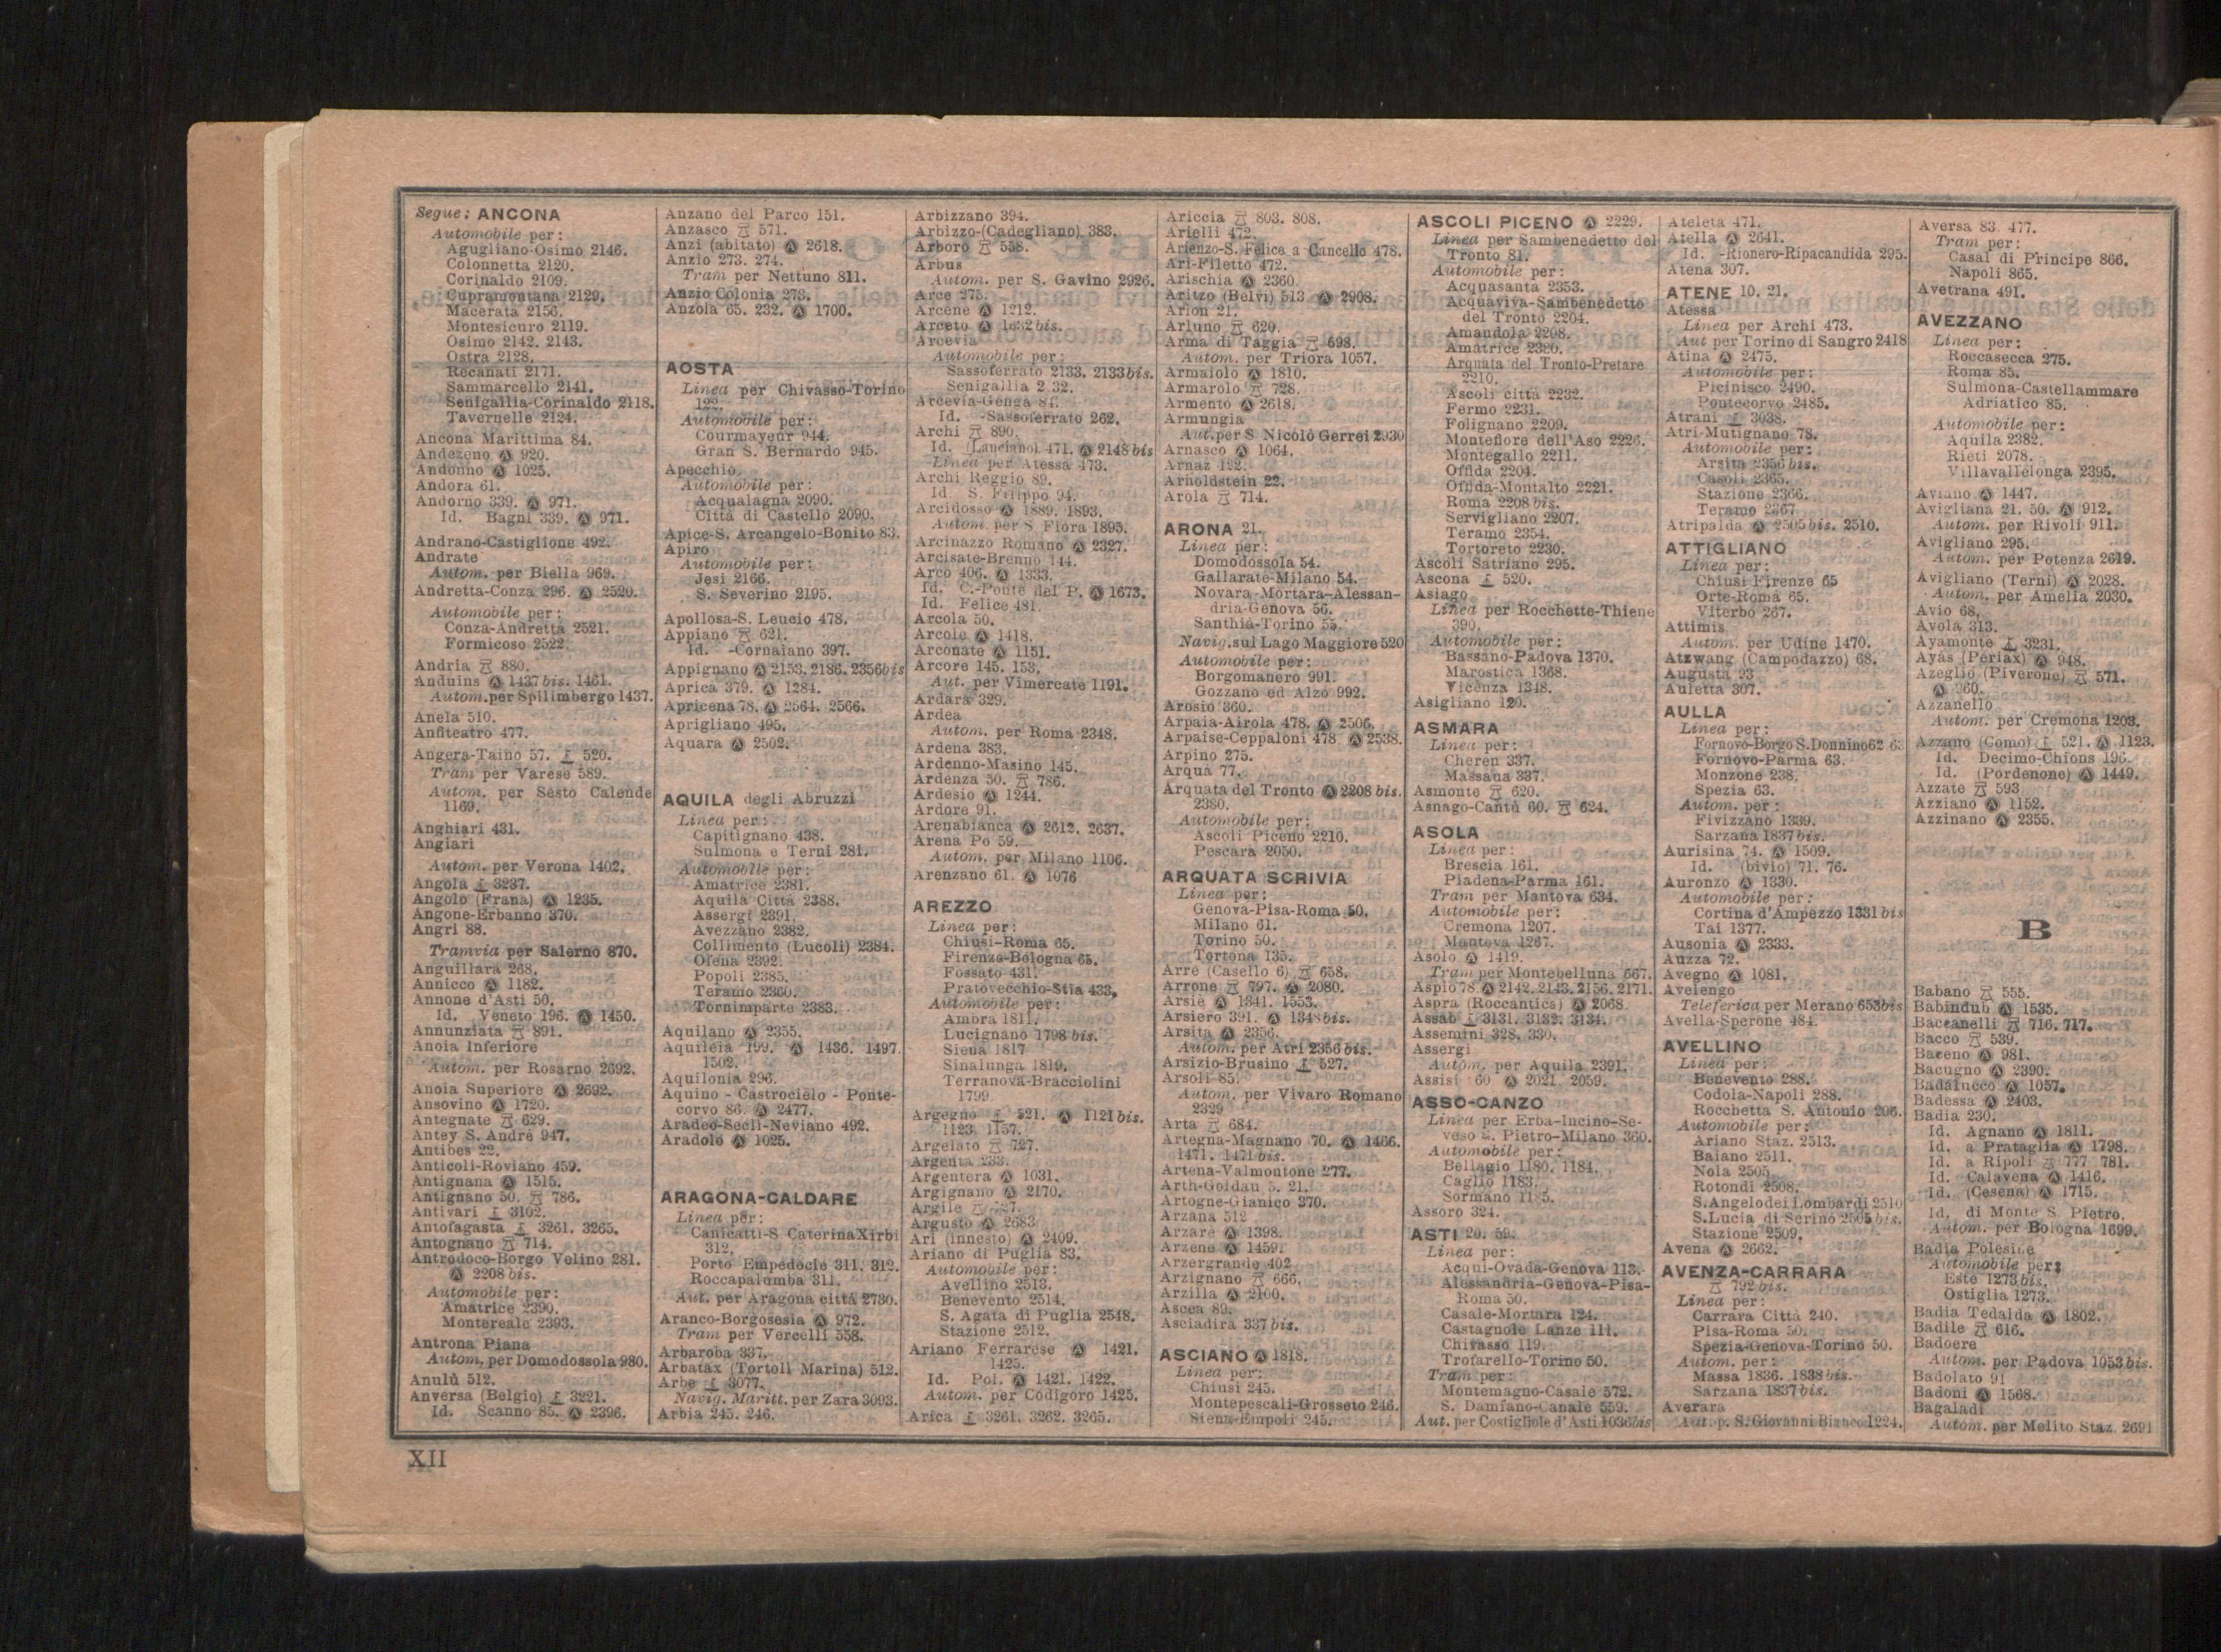 Segue: ANCONA
Automobile per:
Agugliano-Osimo 2146.
Colonnetta 2120.
Corinaldo 2109.
Cupramontana 2129.
Macerata 2156.
Montesicuro 2119.
Osimo 2142. 2143.
Ostra 2128.
Recanati 2171.
Sammarcello 2141.
Senigallia-Corinaldo 2118.
Tavernelle 2124.
Ancona Marittima 84.
Andezeno Ⓐ 920.
Andonno Ⓐ 1025.
Andora 61.
Andorno 339. Ⓐ 971.
Id. Bagni 339. Ⓐ 971.
Andrano-Castiglione 492.
Andrate
Autom. per Biella 969.
Andretta-Conza 296. Ⓐ 2520.
Automobile per:
Conza-Andretta 2521.
Formicoso 2522.
Andria 880.
Anduins Ⓐ 1437 bis. 1461.
Autom. per Spilimbergo 1437.
Anela 510.
Anfiteatro 477.
Angera-Taino 57. 520.
Tram per Varese 589.
Autom. per Sesto Calende
1169.
Anghiari 431.
Angiari
Autom. per Verona 1402.
Angola 3237.
Angolo (Frana) Ⓐ 1235.
Angone-Erbanno 370.
Angri 88.
Tramvia per Salerno 870.
Anguillara 268.
Annicco Ⓐ 1182.
Annone d'Asti 50.
Id. Veneto 196. Ⓐ 1450.
Annunziata 891.
Anoia Inferiore
Autom. per Rosarno 2692.
Anoia Superiore Ⓐ 2692.
Ansovino Ⓐ 1720.
Antegnate 629.
Antey S. André 947.
Antibes 22.
Anticoli-Roviano 459.
Antignana Ⓐ 1515.
Antignano 50. 786.
Antivari 3102.
Antofagasta 3261. 3265.
Antognano 714.
Antrodoco-Borgo Velino 281.
Ⓐ 2208 bis.
Automobile per:
Amatrice 2390.
Montereale 2393.
Antrona Piana
Autom. per Domodossola 980.
Anulù 512.
Anversa (Belgio) 3221.
Id. Scanno 85. Ⓐ 2396.
Anzano del Parco 151.
Anzasco 571.
Anzi (abitato) Ⓐ 2618.
Anzio 273. 274.
Tram per Nettuno 811.
Anzio Colonia 273.
Anzola 65. 232. Ⓐ 1700.
AOSTA
Linea per Chivasso-Torino
122.
Automobile per:
Courmayeur 944.
Gran S. Bernardo 945.
Apecchio
Automobile per:
Acqualagna 2090.
Città di Castello 2090.
Apice-S. Arcangelo-Bonito 83.
Apiro
Automobile per:
Jesi 2166.
S. Severino 2195.
Apollosa-S. Leucio 478.
Appiano 621.
Id. -Cornaiano 397.
Appignano Ⓐ 2153. 2186. 2356 bis
Aprica 379. Ⓐ 1284.
Apricena 78. Ⓐ 2564. 2566.
Aprigliano 495.
Aquara Ⓐ 2502.
AQUILA degli Abruzzi
Linea per:
Capitignano 438.
Sulmona e Terni 281.
Automobile per:
Amatrice 2381.
Aquila Città 2388.
Assergi 2391.
Avezzano 2382.
Collimento (Lucoli) 2384.
Ofena 2392.
Popoli 2385.
Teramo 2360.
Tornimparte 2383.
Aquilano Ⓐ 2355.
Aquileia 199. Ⓐ 1436. 1497.
1502.
Aquilonia 296.
Aquino - Castrocielo - Ponte-
corvo 86. Ⓐ 2477.
Aradeo-Seclì-Neviano 492.
Aradolo Ⓐ 1025.
ARAGONA-CALDARE
Linea per:
Canicattì-S CaterinaXirbi
312.
Porto Empedocle 311. 312.
Roccapalumba 311.
Aut. per Aragona città 2730.
Aranco-Borgosesia Ⓐ 972.
Tram per Vercelli 558.
Arbaroba 337.
Arbatax (Tortolì Marina) 512.
Arbe 3077.
Navig. Maritt. per Zara 3093.
Arbia 245. 246.
Arbizzano 394.
Arbizzo-(Cadegliano) 383.
Arboro 558.
Arbus
Autom. per S. Gavino 2926.
Arce 275.
Arcene Ⓐ 1212.
Arceto Ⓐ 1632 bis.
Arcevia
Automobile per:
Sassoferrato 2133. 2133 bis.
Senigallia 2132.
Arcevia-Genga 84.
Id. -Sassoferrato 262.
Archi 890.
Id. (Lanciano) 471. Ⓐ 2148 bis
Linea per Atessa 473.
Archi Reggio 89.
Id S. Filippo 94.
Arcidosso Ⓐ 1889. 1893.
Autom. per S Fiora 1895.
Arcinazzo Romano Ⓐ 2327.
Arcisate-Brenno 144.
Arco 406. Ⓐ 1333.
Id. C.-Ponte del P. Ⓐ 1673.
Id. Felice 481.
Arcola 50.
Arcole Ⓐ 1418.
Arconate Ⓐ 1151.
Arcore 145. 153.
Aut. per Vimercate 1191.
Ardara 329.
Ardea
Autom. per Roma 2348.
Ardena 383.
Ardenno-Masino 145.
Ardenza 50. 786.
Ardesio Ⓐ 1244.
Ardore 91.
Arenabianca Ⓐ 2612. 2637.
Arena Po 59.
Autom. per Milano 1106.
Arenzano 61. Ⓐ 1076
AREZZO
Linea per:
Chiusi-Roma 65.
Firenze-Bologna 65.
Fossato 431.
Pratovecchio-Stia 433.
Automobile per:
Ambra 1811.
Lucignano 1798 bis.
Siena 1817
Sinalunga 1819.
Terranova-Bracciolini
1799.
Argegno 521. Ⓐ 1121 bis.
1123. 1157.
Argelato 727.
Argenta 233.
Argentera Ⓐ 1031.
Argignano Ⓐ 2170.
Argile
Argusto Ⓐ 2683
Ari (innesto) Ⓐ 2409.
Ariano di Puglia 83.
Automobile per:
Avellino 2513.
Benevento 2514.
S. Agata di Puglia 2548.
Stazione 2512.
Ariano Ferrarese Ⓐ 1421.
1425.
Id. Pol. Ⓐ 1421. 1422.
Autom. per Codigoro 1425.
Arica 3261. 3262. 3265.
Ariccia 803. 808.
Arielli 472.
Arienzo-S. Felice a Cancello 478.
Ari-Filetto 472.
Arischia Ⓐ 2360.
Aritzo (Belvì) 513 Ⓐ 2908.
Arlon 21.
Arluno 620.
Arma di Taggia 698.
Autom. per Triora 1057.
Armaiolo Ⓐ 1810.
Armarolo 728.
Armento Ⓐ 2618.
Armungia
Aut. per S Nicolò Gerrei 2930
Arnasco Ⓐ 1064.
Arnaz 122.
Arnoldstein 22.
Arola 714.
ARONA 21.
Linea per:
Domodossola 54.
Gallarate-Milano 54.
Novara-Mortara-Alessan-
dria-Genova 56.
Santhià-Torino 55.
Navig. sul Lago Maggiore 520
Automobile per:
Borgomanero 991.
Gozzano ed Alzo 992.
Arosio 360.
Arpaia-Airola 478. Ⓐ 2506.
Arpaise-Ceppaloni 478. Ⓐ 2538.
Arpino 275.
Arquà 77.
Arquata del Tronto Ⓐ 2208 bis.
2380.
Automobile per:
Ascoli Piceno 2210.
Pescara 2050.
ARQUATA SCRIVIA
Linea per:
Genova-Pisa-Roma 50.
Milano 61.
Torino 50.
Tortona 135.
Arre (Casello 6) 658.
Arrone 797. Ⓐ 2080.
Arsiè Ⓐ 1341. 1553.
Arsiero 391. Ⓐ 1348 bis.
Arsita Ⓐ 2356.
Autom. per Atri 2356 bis.
Arsizio-Brusino 527.
Arsoli 85.
Autom. per Vivaro Romano
2329
Arta 684.
Artegna-Magnano 70. Ⓐ 1466.
1471. 1471 bis.
Artena-Valmontone 277.
Arth-Goldau 5. 21.
Artogne-Gianico 370.
Arzana 512
Arzare Ⓐ 1398.
Arzene Ⓐ 1459.
Arzergrande 402
Arzignano 666.
Arzilla Ⓐ 2100.
Ascea 89.
Asciadira 337 bis.
ASCIANO Ⓐ 1818.
Linea per:
Chiusi 245.
Montepescali-Grosseto 246.
Siena-Empoli 245.
ASCOLI PICENO Ⓐ 2229.
Linea per Sambenedetto del
Tronto 81.
Automobile per:
Acquasanta 2353.
Acquaviva-Sambenedetto
del Tronto 2204.
Amandola 2208.
Amatrice 2380.
Arquata del Tronto-Pretare
2210.
Ascoli città 2232.
Fermo 2231.
Folignano 2209.
Montefiore dell'Aso 2226.
Montegallo 2211.
Offida 2204.
Offida-Montalto 2221.
Roma 2208 bis.
Servigliano 2207.
Teramo 2354.
Tortoreto 2230.
Ascoli Satriano 295.
Ascona 520.
Asiago
Linea per Rocchette-Thiene
390.
Automobile per:
Bassano-Padova 1370.
Marostica 1368.
Vicenza 1348.
Asigliano 120.
ASMARA
Linea per:
Cheren 337.
Massaua 337.
Asmonte 620.
Asnago-Cantù 60. 624.
ASOLA
Linea per:
Brescia 161.
Piadena-Parma 161.
Tram per Mantova 634.
Automobile per:
Cremona 1207.
Mantova 1267.
Asolo Ⓐ 1419.
Tram per Montebelluna 667.
Aspio 78. Ⓐ 2142. 2143. 2156. 2171.
Aspra (Roccantica) Ⓐ 2068.
Assab 3131. 3132. 3134.
Assemini 328. 330.
Assergi
Autom. per Aquila 2391.
Assisi 60 Ⓐ 2021. 2059.
ASSO-CANZO
Linea per Erba-Incino-Se-
veso S. Pietro-Milano 360.
Automobile per:
Bellagio 1180. 1184.
Caglio 1183.
Sormano 1185.
Assoro 324.
ASTI 20. 59.
Linea per:
Acqui-Ovada-Genova 113.
Alessandria-Genova-Pisa-
Roma 50.
Casale-Mortara 124.
Castagnole Lanze 111.
Chivasso 119.
Trofarello-Torino 50.
Tram per:
Montemagno-Casale 572.
S. Damiano-Canale 559.
Aut. per Costigliole d'Asti 1036 bis
Ateleta 471.
Atella Ⓐ 2641.
Id. -Rionero-Ripacandida 295.
Atena 307.
ATENE 10. 21.
Atessa
Linea per Archi 473.
Aut per Torino di Sangro 2418
Atina Ⓐ 2475.
Automobile per:
Picinisco 2490.
Pontecorvo 2485.
Atrani 3038.
Atri-Mutignano 78.
Automobile per:
Arsita 2356 bis.
Casoli 2365.
Stazione 2366.
Teramo 2367
Atripalda Ⓐ 2505 bis. 2510.
ATTIGLIANO
Linea per:
Chiusi Firenze 65
Orte-Roma 65.
Viterbo 267.
Attimis
Autom. per Udine 1470.
Atzwang (Campodazzo) 68.
Augusta 93
Auletta 307.
AULLA
Linea per:
Fornovo-Borgo S. Donnino 62 63
Fornovo-Parma 63.
Monzone 238.
Spezia 63.
Autom. per:
Fivizzano 1339.
Sarzana 1837 bis.
Aurisina 74. Ⓐ 1509.
Id. (bivio) 71. 76.
Auronzo Ⓐ 1330.
Automobile per:
Cortina d'Ampezzo 1331 bis
Tai 1377.
Ausonia Ⓐ 2333.
Auzza 72.
Avegno Ⓐ 1081.
Avelengo
Teleferica per Merano 653 bis
Avella-Sperone 484.
AVELLINO
Linea per:
Benevento 288.
Codola-Napoli 288.
Rocchetta S. Antonio 296.
Automobile per:
Ariano Staz. 2513.
Baiano 2511.
Nola 2505.
Rotondi 2508.
S. Angelo dei Lombardi 2510
S. Lucia di Serino 2505 bis.
Stazione 2509.
Avena Ⓐ 2662.
AVENZA-CARRARA
792 bis.
Linea per:
Carrara Città 240.
Pisa-Roma 50.
Spezia-Genova-Torino 50.
Autom. per:
Massa 1836. 1838 bis.
Sarzana 1837 bis.
Averara
Aut. p. S. Giovanni Bianco 1224.
Aversa 83. 477.
Tram per:
Casal di Principe 866.
Napoli 865.
Avetrana 491.
AVEZZANO
Linea per:
Roccasecca 275.
Roma 85.
Sulmona-Castellammare
Adriatico 85.
Automobile per:
Aquila 2382.
Rieti 2078.
Villavallelonga 2395.
Aviano Ⓐ 1447.
Avigliana 21. 50. Ⓐ 912.
Autom. per Rivoli 911.
Avigliano 295.
Autom. per Potenza 2619.
Avigliano (Terni) Ⓐ 2028.
Autom. per Amelia 2030.
Avio 68.
Avola 313.
Ayamonte 3231.
Ayas (Periax) Ⓐ 948.
Azeglio (Piverone) 571.
Ⓐ 960.
Azzanello
Autom. per Cremona 1203.
Azzano (Como) 521. Ⓐ 1123.
Id. Decimo-Chions 196.
Id. (Pordenone) Ⓐ 1449.
Azzate 593
Azziano Ⓐ 1152.
Azzinano Ⓐ 2355.
B
Babano 555.
Babindub Ⓐ 1535.
Baccanelli 716. 717.
Bacco 539.
Baceno Ⓐ 981.
Bacugno Ⓐ 2390.
Badalucco Ⓐ 1057.
Badessa Ⓐ 2403.
Badia 230.
Id. Agnano Ⓐ 1811.
Id. a Prataglia Ⓐ 1798.
Id. a Ripoli 777 781.
Id. Calavena Ⓐ 1416.
Id. (Cesena) Ⓐ 1715.
Id. di Monte S. Pietro.
Autom. per Bologna 1699.
Badia Polesine
Automobile per:
Este 1273 bis.
Ostiglia 1273.
Badia Tedalda Ⓐ 1802.
Badile 616.
Badoere
Autom. per Padova 1053 bis.
Badolato 91
Badoni Ⓐ 1568.
Bagaladi
Autom. per Melito Staz. 2691
XII